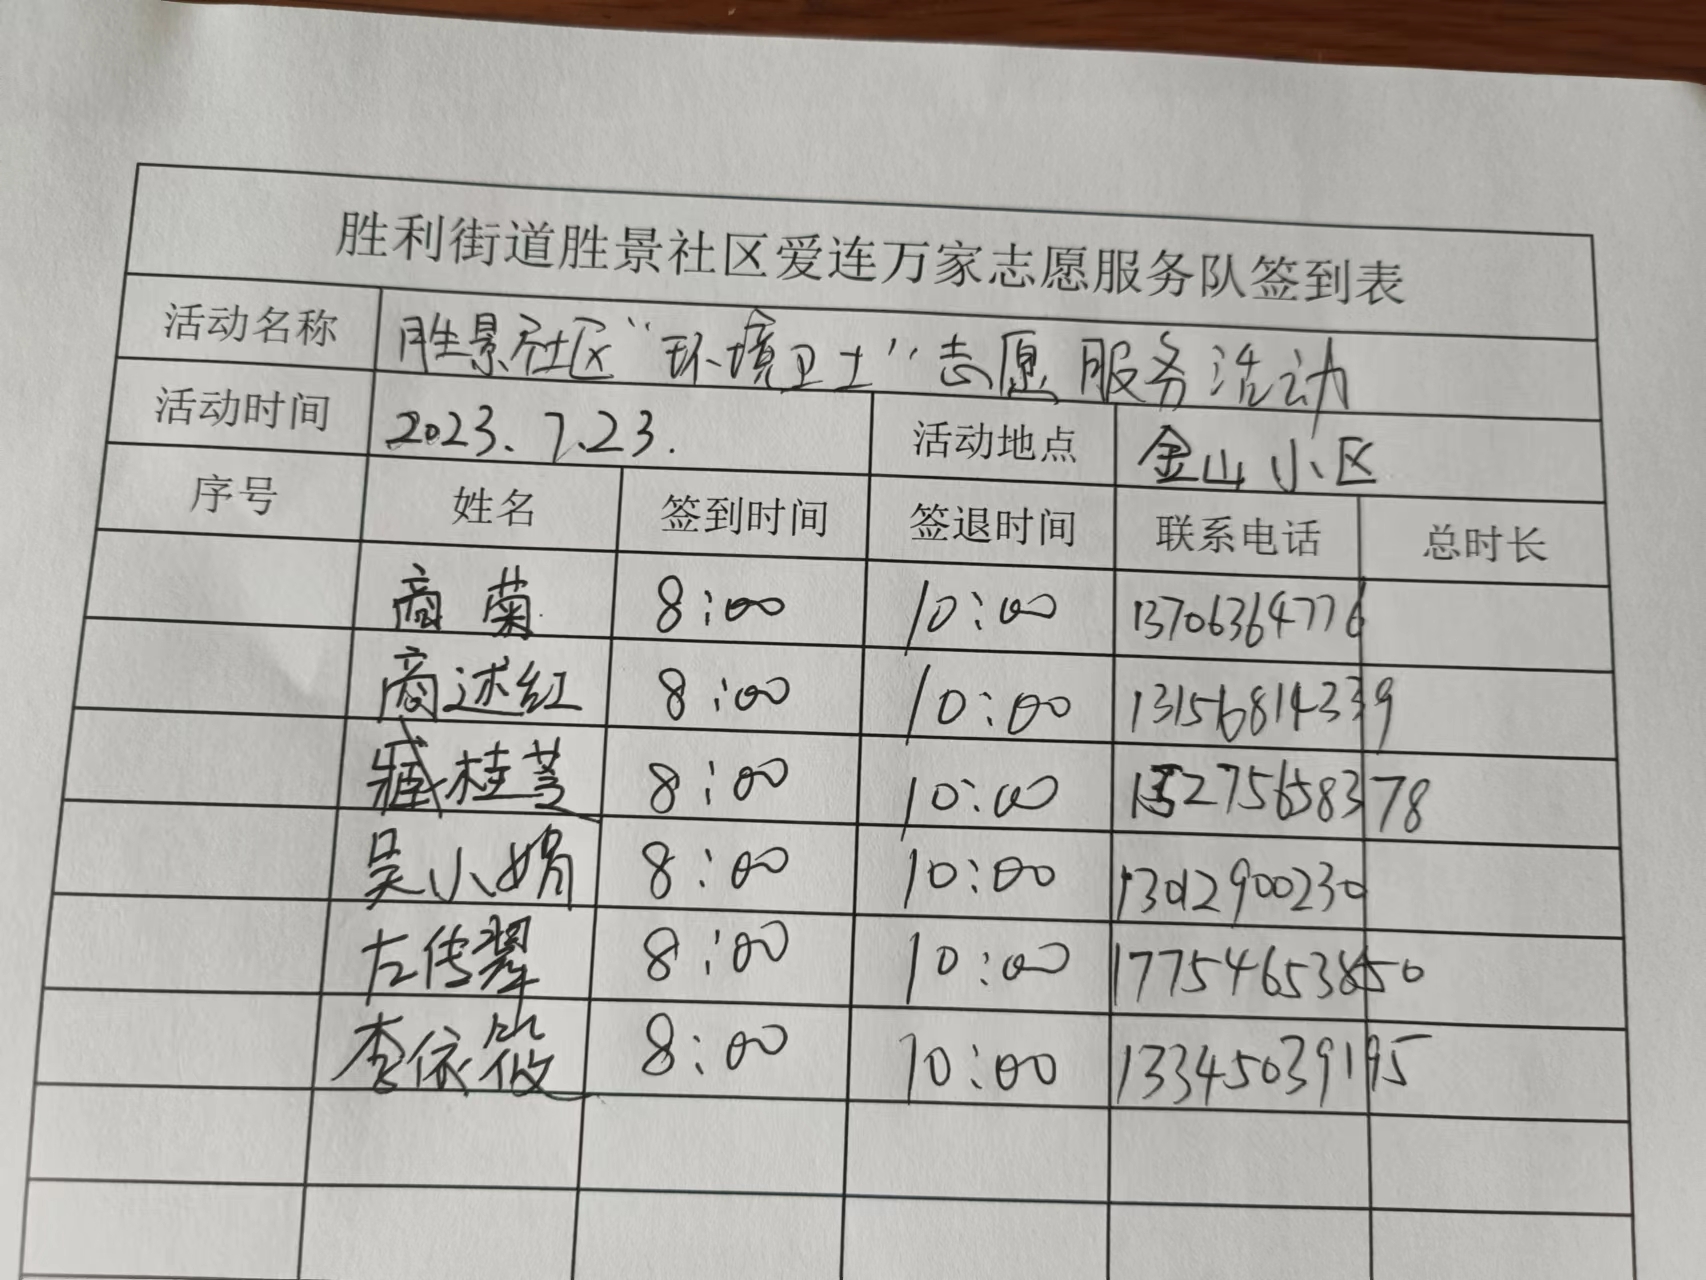 胜利街道胜景社区爱连万家志愿服务队签到表
活动名称 胜景社区“环境卫士”志愿服务活动
活动时间 2023.7.23. 活动地点 金山小区
序号 姓名 签到时间 签退时间 联系电话 总时长
商菊 8:00 10:00 13706364776
商述红 8:00 10:00 13156814339
臧桂芝 8:00 10:00 15275658378
吴小娟 8:00 10:00 13012900230
左传翠 8:00 10:00 17754653850
李依筱 8:00 10:00 13345039195